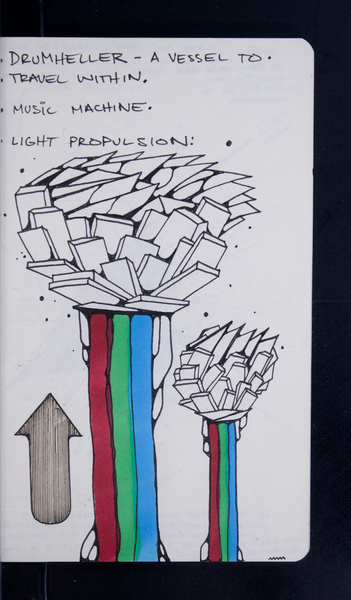 DRUMHELLER - A VESSEL TO
TRAVEL WITHIN.
MUSIC MACHINE.
LIGHT PROPULSION: